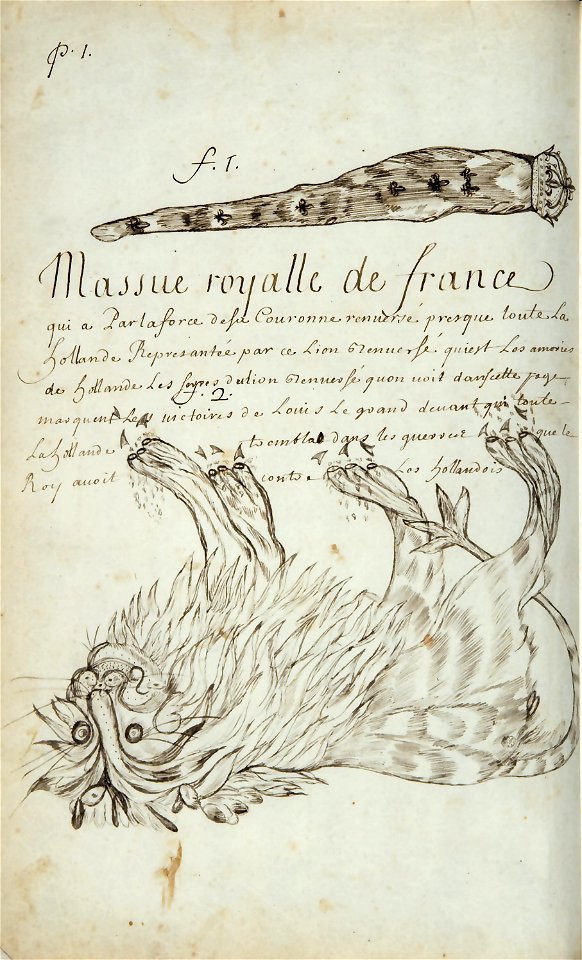 p. 1.
f. 1.
Massue royalle de france
qui a Par la force de sa Couronne renversé presque toute La
hollande Represantée par ce Lion Renversé qui est Les amories
de hollande Les f. 2. du lion Renversé quon voit dans cette page
marquent Les victoires de Louis Le grand devant qui toute
La hollande trembla dans les guerres que le
Roy avoit contre Les hollandois